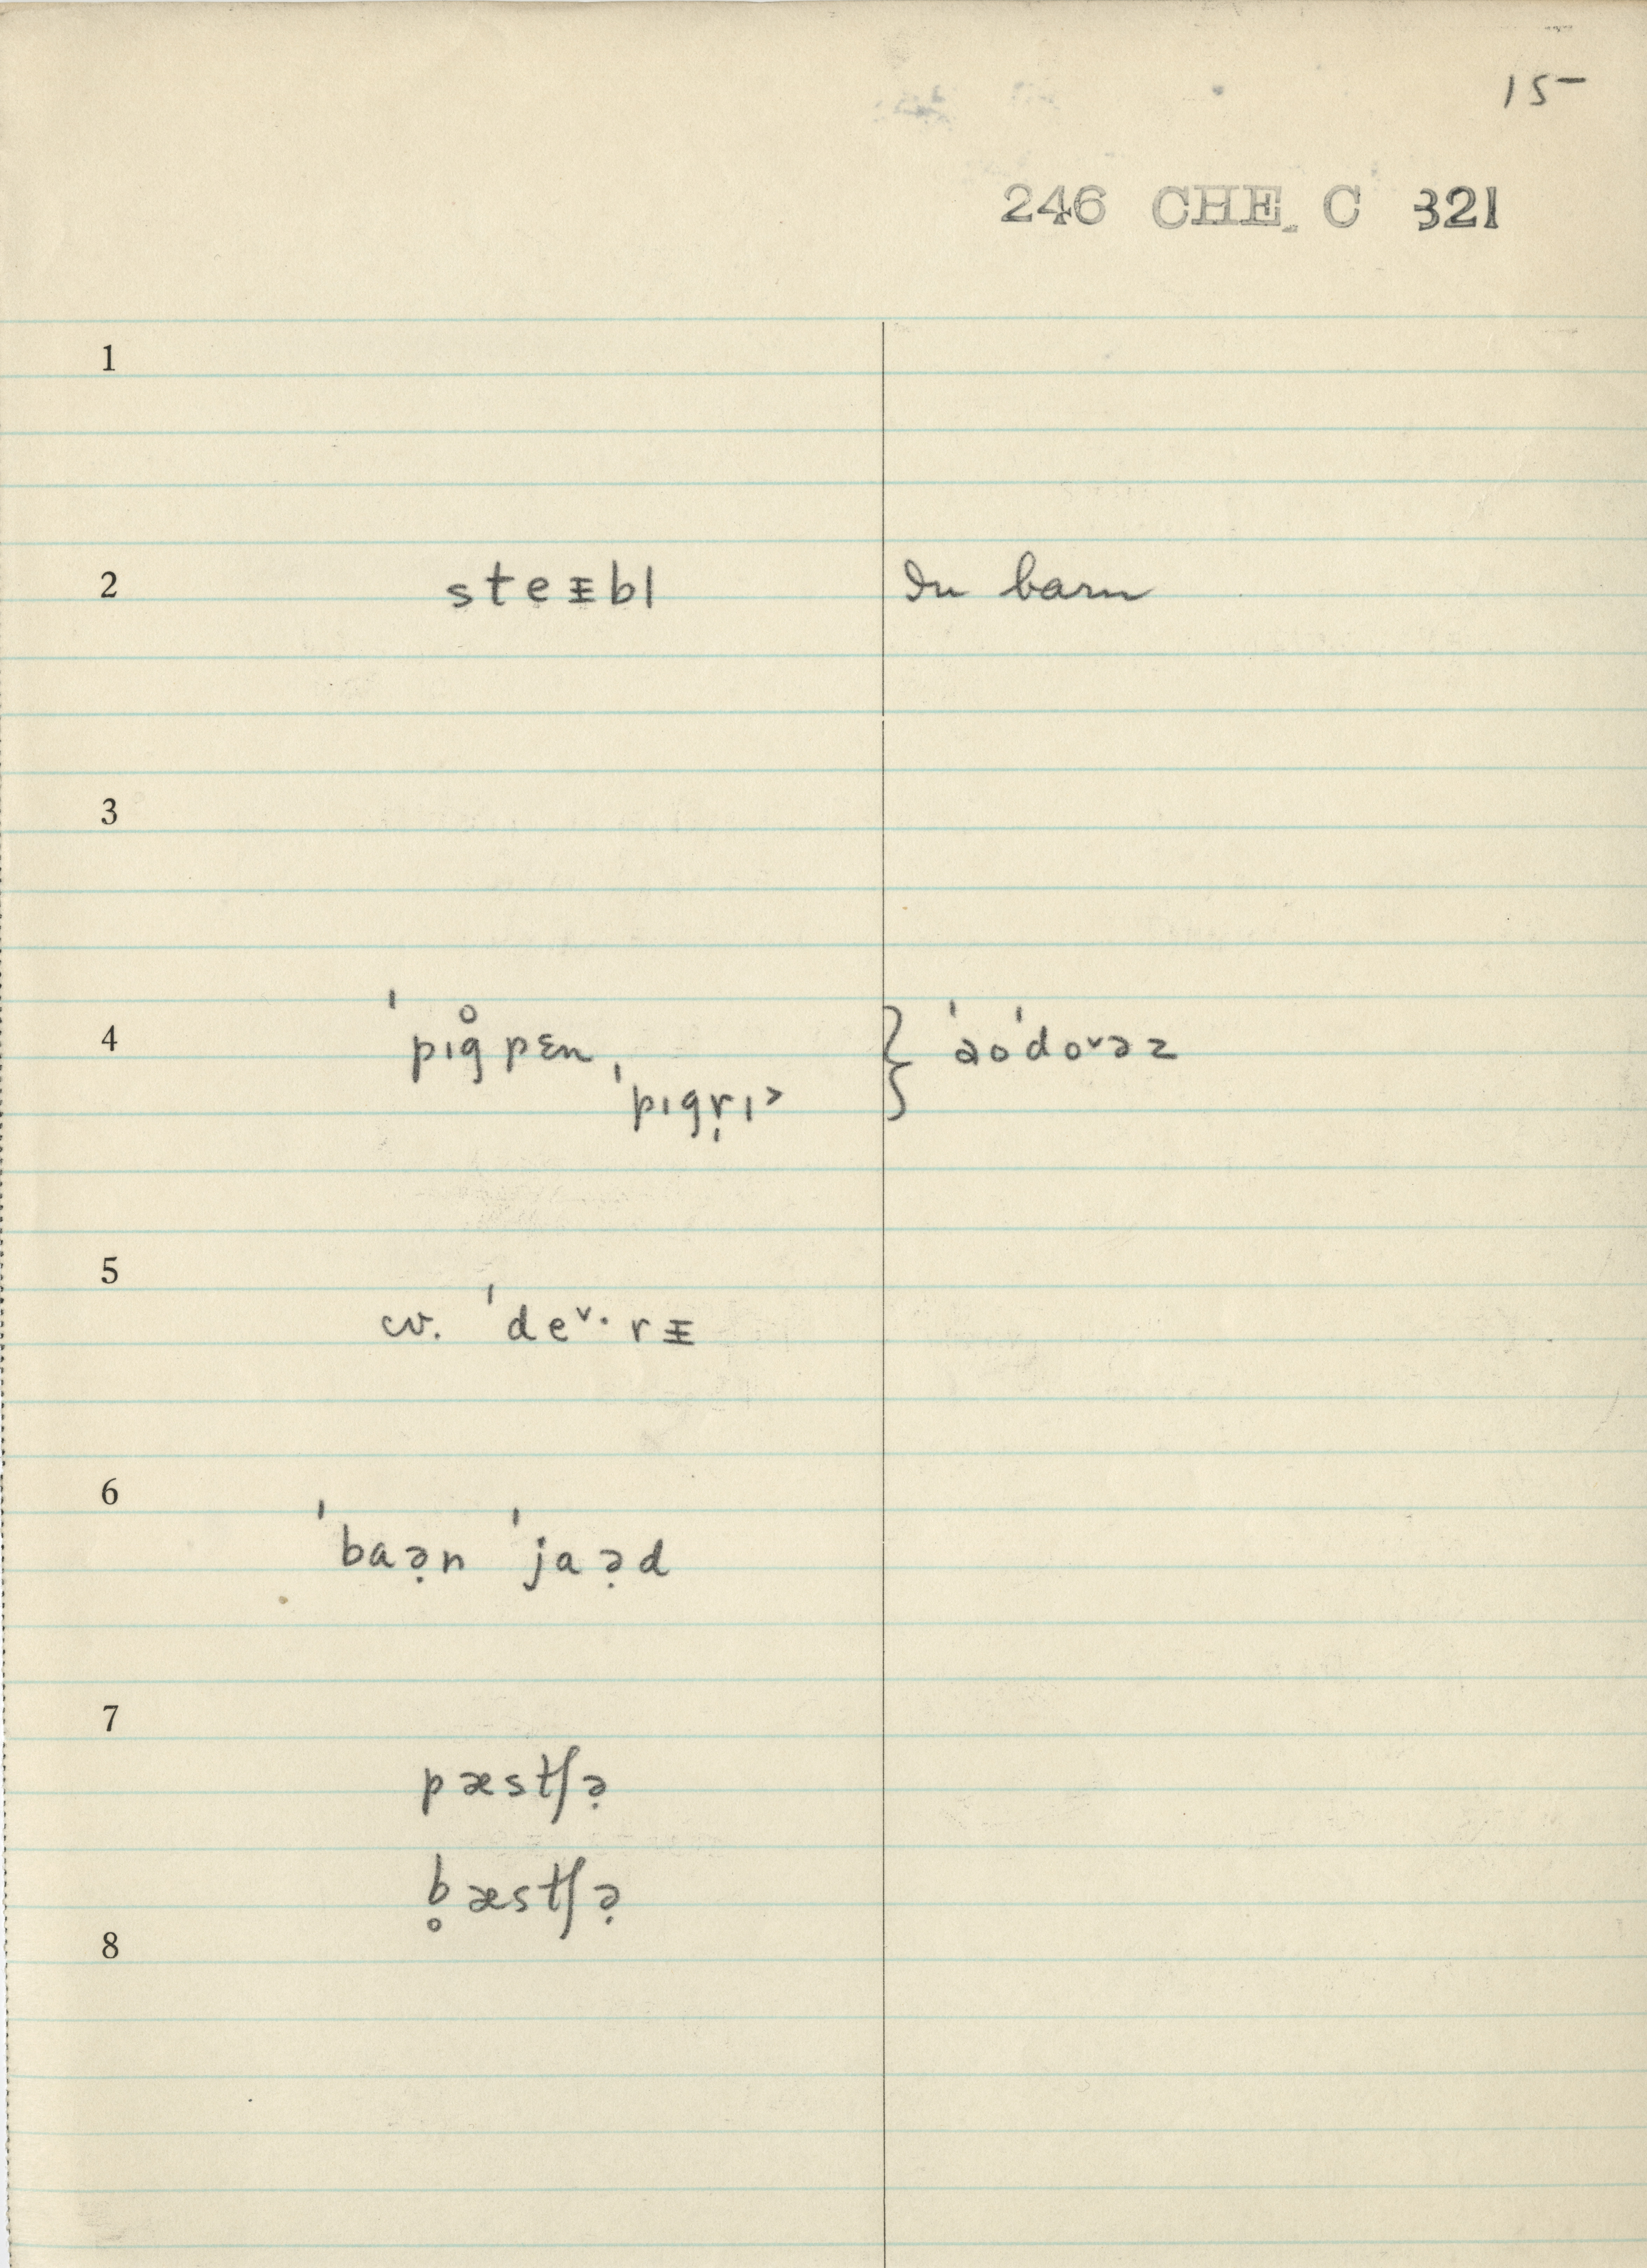 15
246 CHE. C 321
1
2 steɪ̵bl In barn
3
4 ˈpɪg̊pɛn, } ˈaoˈdo˅əz
ˈpɪgr̩ɪ˃
5 cv. ˈde˅·rɪ̵
6 ˈbaə̣n ˈjaə̣d
7 pæstʃə̣
b̥æstʃə̣
8